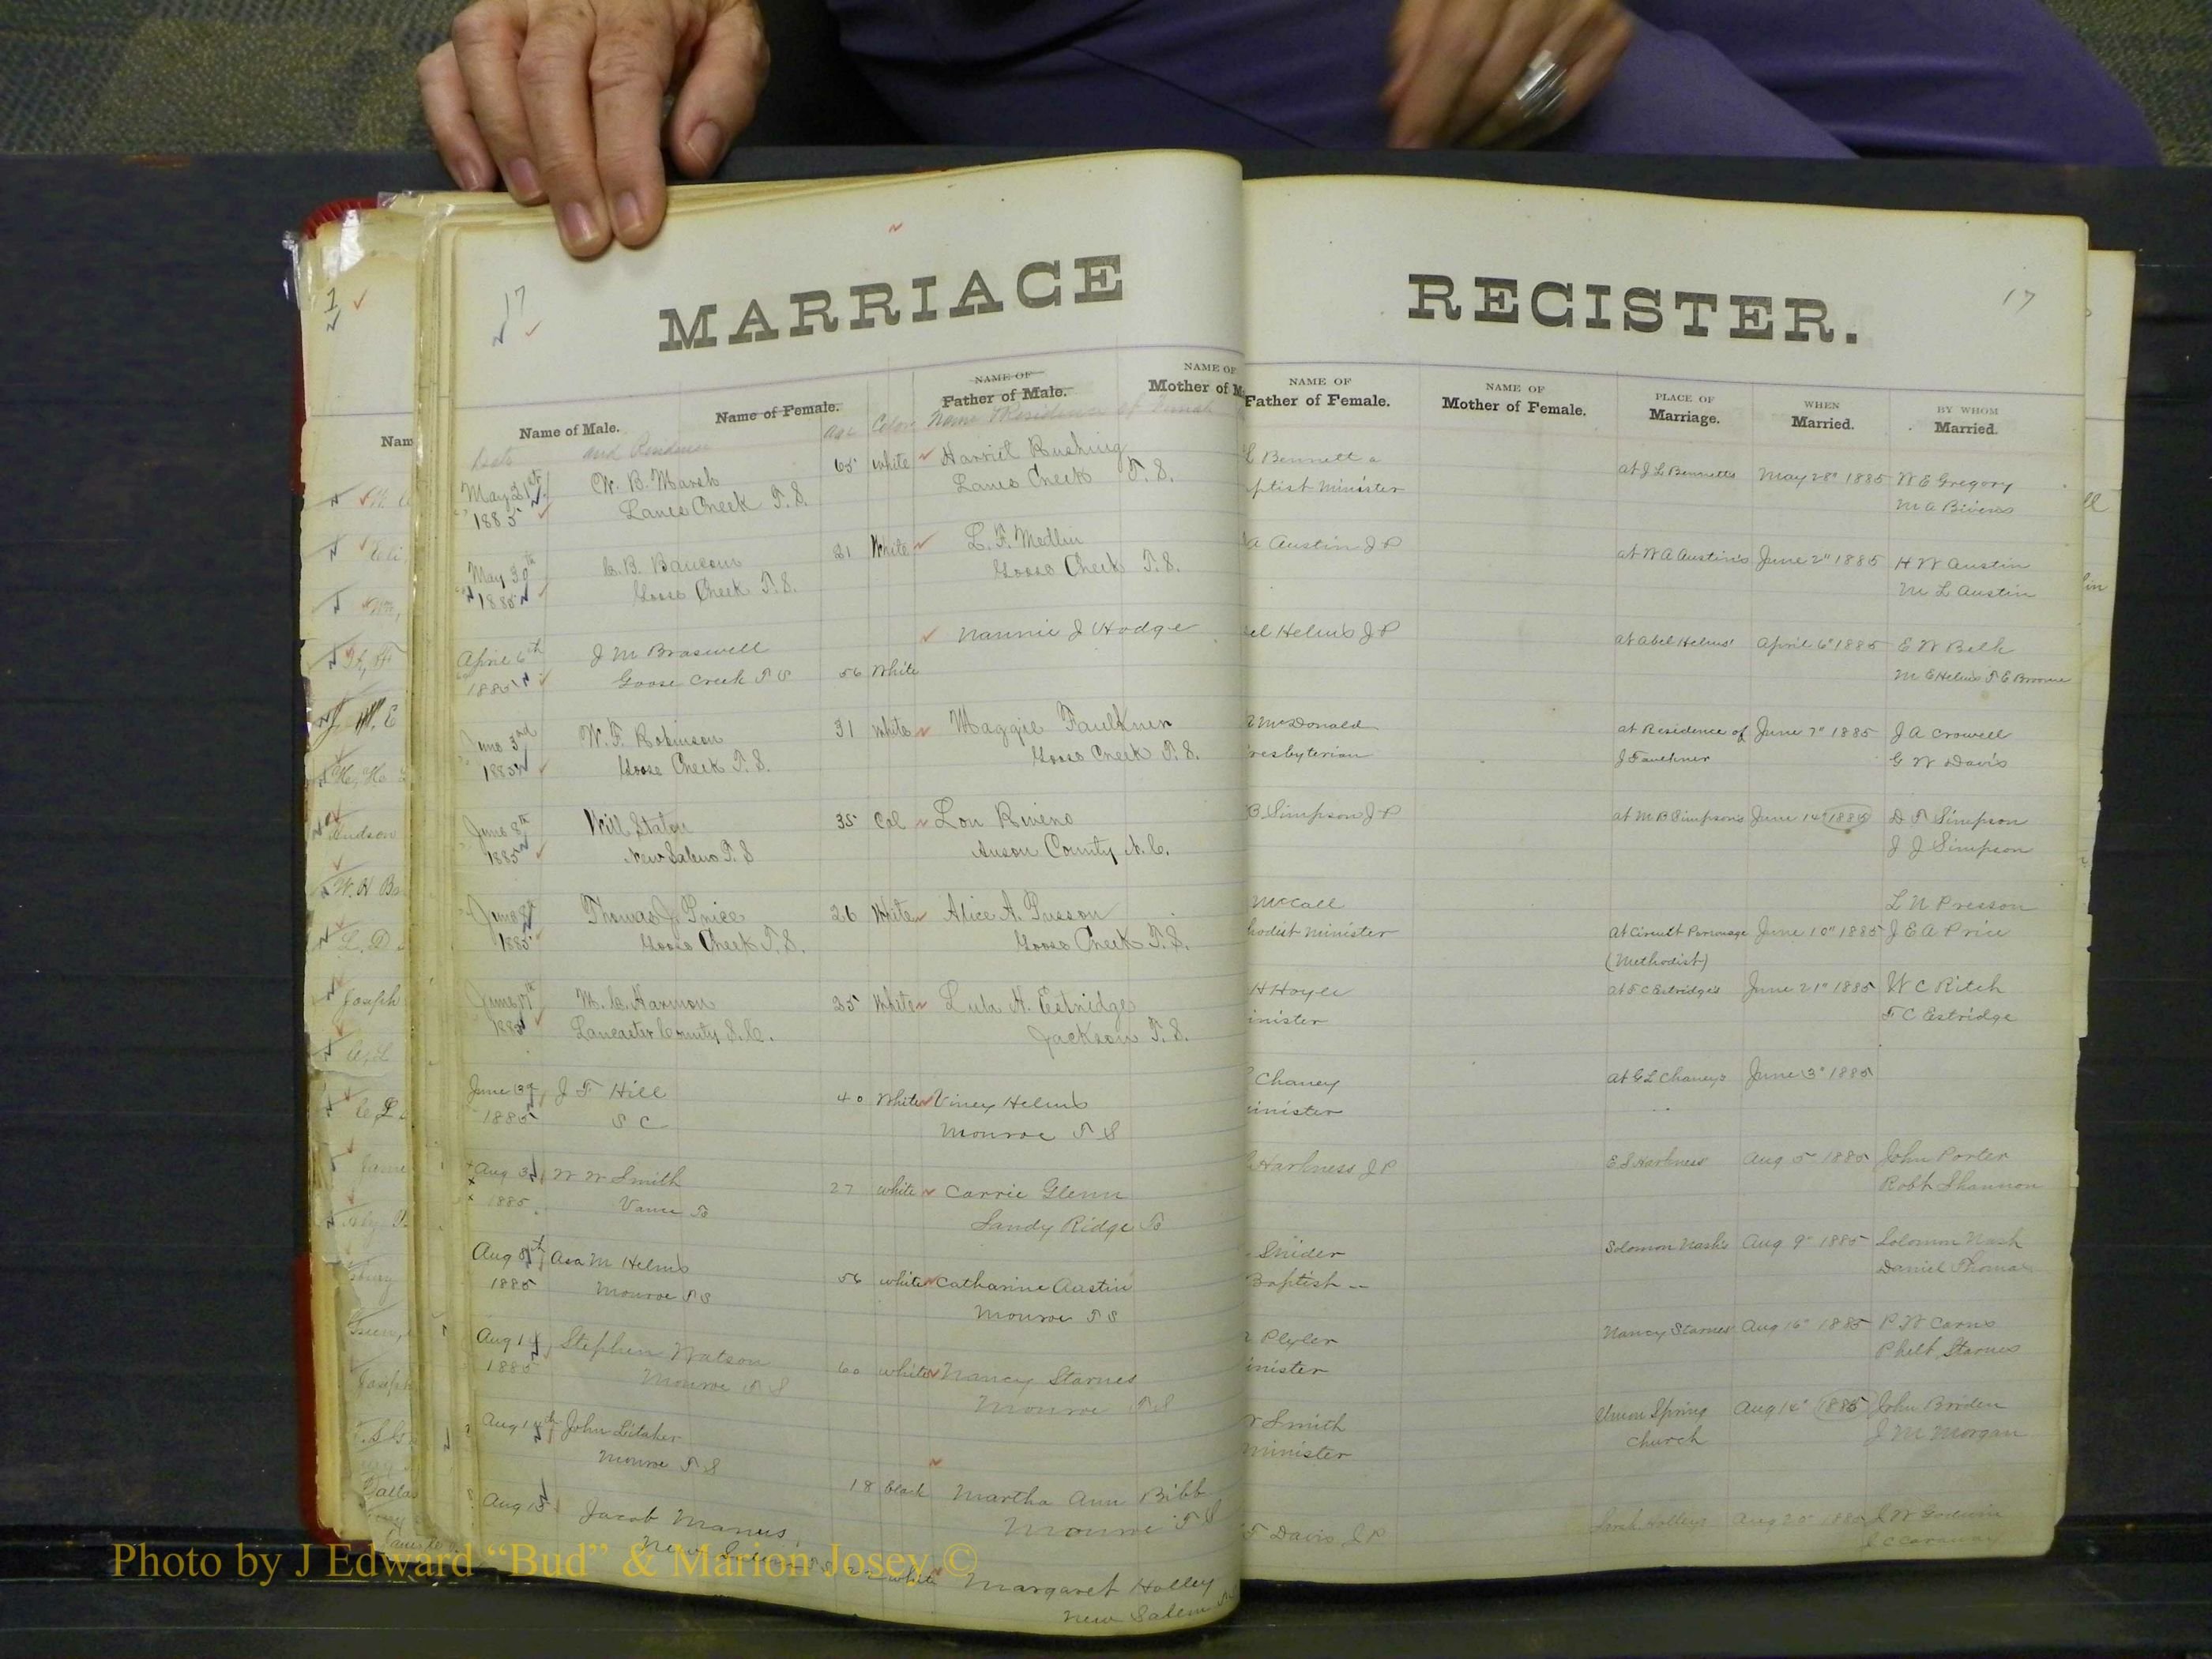 MARRIAGE REGISTER.
17
17
1
Nam
NAME OF
Father of Male.
NAME OF
Mother of M
Name of Male.
Name of Female.
and Residence
Age
Color
Name & Residence of Female
NAME OF
Father of Female.
NAME OF
Mother of Female.
PLACE OF
Marriage.
WHEN
Married.
BY WHOM
Married.
May 21st W. B. Marsh 65 white Harriet Rushing
1885 Lanes Creek T. S. Lanes Creek T. S.
L Bennett a at J L Bennetts May 28" 1885 W E Gregory
ptist Minister M A Bivens
May 30th C. B. Baucom 21 White L. F. Medlin
1885 Goose Creek T. S. Goose Creek T. S.
A Austin J P at W A Austin's June 2" 1885 H W Austin
M L Austin
April 6th J M Braswell Nannie J Hodge
1885 Goose Creek T S 56 White
el Helms J P at Abel Helms' April 6" 1885 E W Belk
M E Helms T E Broome
June 3rd W. F. Robinson 31 white Maggie Faulkner
1885 Goose Creek T. S. Goose Creek T. S.
McDonald at Residence of June 7" 1885 J A Crowell
resbyterian J Faulkner G W Davis
June 8th Will Staton 35 Col Lou Rivens
1885 New Salem T. S Anson County N. C.
B Simpson J P at M B Simpson's June 14" 1885 D T Simpson
J J Simpson
June 8th Thomas J. Price 26 White Alice A. Presson
1885 Goose Creek T. S. Goose Creek T. S.
McCall L N Presson
hodist Minister at Circuit Parsonage June 10" 1885 J E A Price
(Methodist)
June M. C. Harmon 35 White Lula H. Estridge
1885 Lancaster County S. C. Jackson T. S.
H Hoyle at T C Estridge's June 21" 1885 W C Ritch
inister T C Estridge
June J F Hill 40 White Viney Helms
1885 S C Monroe T S
Chaney at G L Chaney's June 3" 1885
inister
Aug 3 W W Smith 27 white Carrie Glenn
1885 Vance Ts Sandy Ridge Ts
Harkness J P E S Harkness Aug 5 1885 John Porter
Robt Shannon
Aug 8th Asa M Helms 56 white Catharine Austin
1885 Monroe T S Monroe T S
Snider Solomon Nash's Aug 9" 1885 Solomon Nash
Baptish Daniel Thomas
Aug 14 Stephen Watson 60 white Nancy Starnes
1885 Monroe T S Monroe T S
Plyler Nancy Starnes Aug 16" 1885 P W Carns
inister Phelt Starnes
Aug 14th John Sitaker 18 black Martha Ann Bibb
Monroe T S Monroe T S
Smith Union Spring Aug 16" 1885 John Broden
minister Church J M Morgan
Aug 15 Jacob Manus white Margaret Holley
New Salem T S New Salem
T Davis J P Sarah Holleys Aug 20" 1885 J W Godwin
J C Caraway
W. H Ba
L. D.
Joseph
Hudson
Dallas
Photo by J Edward “Bud” & Marion Josey ©